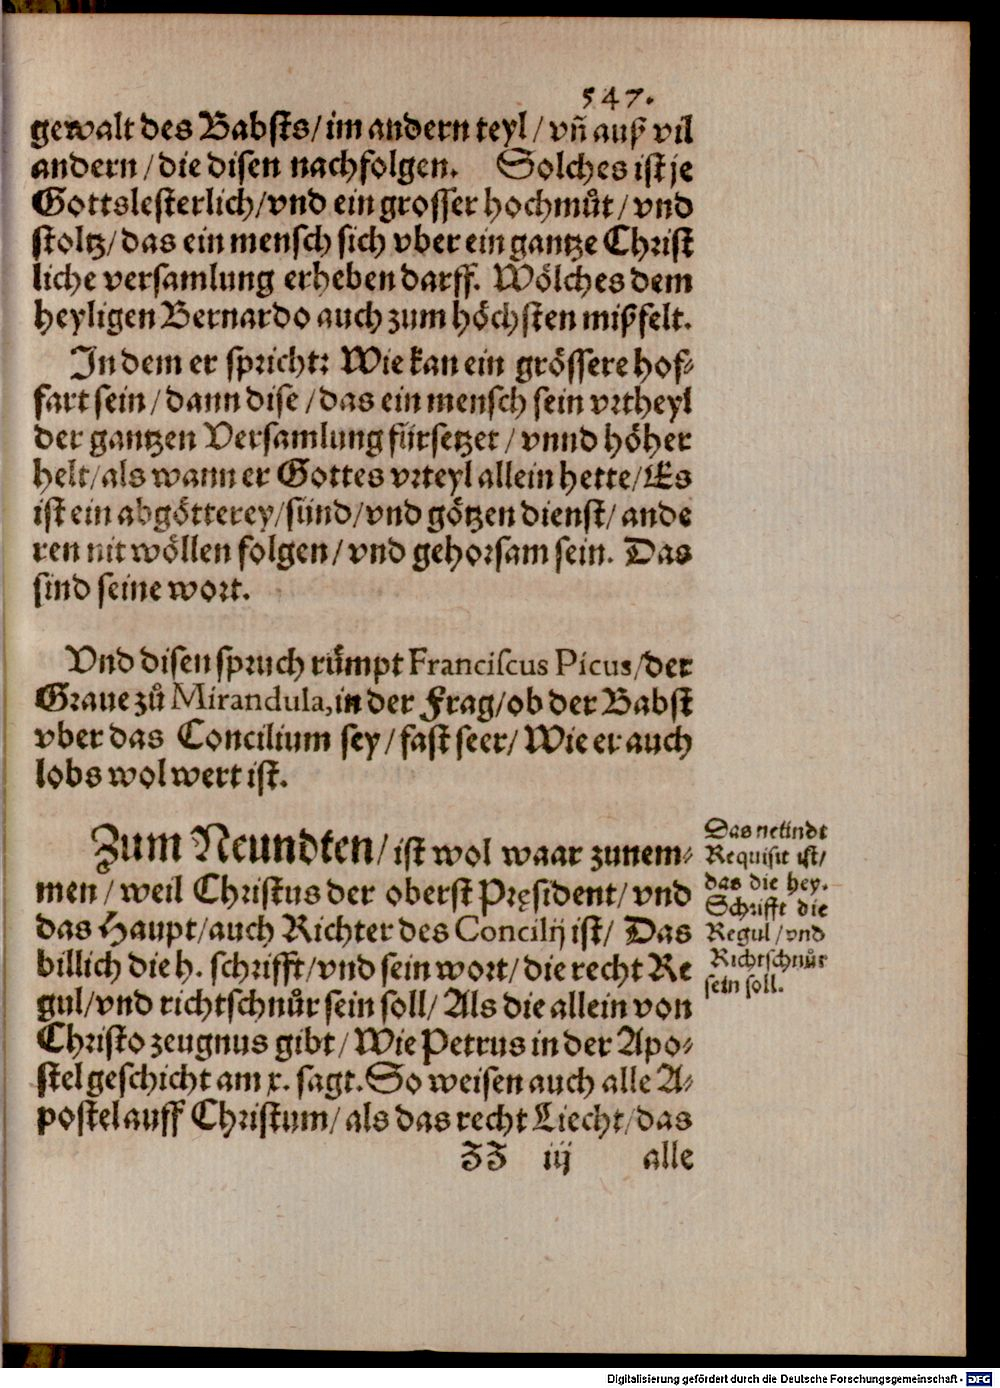 547.
gewalt des Babsts/ im andern teyl/ vñ auß vil
andern/ die disen nachfolgen. Solches ist je
Gottslesterlich/ vnd ein grosser hochmůt/ vnd
stoltz/ das ein mensch sich vber ein gantze Christ
liche versamlung erheben darff. Wölches dem
heyligen Bernardo auch zum höchsten mißfelt.
In dem er spricht: Wie kan ein grössere hof-
fart sein/ dann dise/ das ein mensch sein vrtheyl
der gantzen Versamlung fürsetzet/ vnnd höher
helt/ als wann er Gottes vrteyl allein hette/ Es
ist ein abgötterey/ sünd/ vnd götzen dienst/ ande
ren nit wöllen folgen/ vnd gehorsam sein. Das
sind seine wort.
Vnd disen spruch růmpt Franciscus Picus/ der
Graue zů Mirandula, in der Frag/ ob der Babst
vber das Concilium sey/ fast seer/ Wie er auch
lobs wol wert ist.
Zum Neundten/ ist wol waar zunem-
men/ weil Christus der oberst Pręsident/ vnd
das Haupt/ auch Richter des Concilij ist/ Das
billich die h. schrifft/ vnd sein wort/ die recht Re
gul/ vnd richtschnůr sein soll/ Als die allein von
Christo zeugnus gibt/ Wie Petrus in der Apo-
stel geschicht am x. sagt. So weisen auch alle A-
postel auff Christum/ als das recht Liecht/ das
ZZ iij alle
Das neündt
Requisit ist/
das die hey.
Schrifft die
Regul/ vnd
Richtschnůr
sein soll.
Digitalisierung gefördert durch die Deutsche Forschungsgemeinschaft - DFG